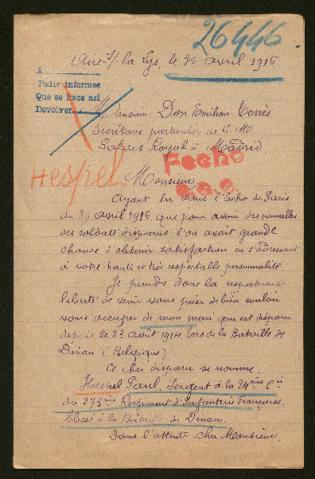 26446
Aire s/ la Lys, le 30 avril 1916
Pedir informes
Que se hace así
Devolver
Monsieur Don Emilion Torrès
Secrétaire particulier de S. M.
Palais Royal à Madrid
Hespel
Fecho
Monsieur
Ayant lu dans l'Echo de Paris
du 29 avril 1916, que pour avoir des nouvelles
des soldats disparus l'on avait grande
chance d'obtenir satisfaction en s'adressant
à votre haute et très respectable personnalité
Je prends donc la respectueuse
liberté de venir vous prier de bien vouloir
vous occuper de mon mari qui est disparu
depuis le 23 août 1914 lors de la Bataille de
Dinan (Belgique)
Ce cher disparu se nomme:
Hespel Paul, Sergent à la 24ème Cie
du 273ème Régiment d'Infanterie Française,
blessé à la Bataille de Dinan.
Dans l'attente, Cher Monsieur